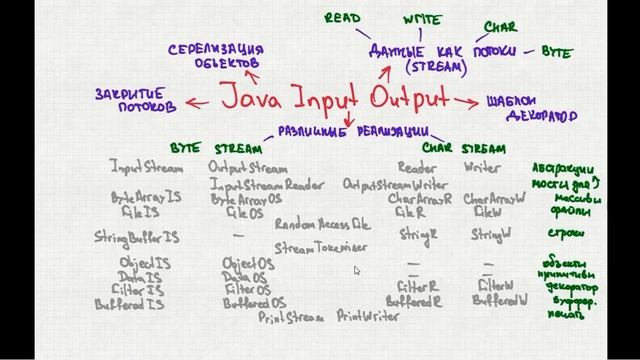 READ WRITE CHAR
СЕРЕЛИЗАЦИЯ ОБЪЕКТОВ
ДАННЫЕ КАК ПОТОКИ (STREAM)
BYTE
ЗАКРИТИЕ ПОТОКОВ
Java Input Output
ШАБЛОН ДЕКОРАТОР
РАЗЛИЧНЫЕ РЕАЛИЗАЦИИ
BYTE STREAM CHAR STREAM
InputStream OutputStream Reader Writer АБСТРАКЦИИ
InputStreamReader OutputStreamWriter МОСТЫ ДЛЯ ↑
ByteArrayIS ByteArrayOS CharArrayR CharArrayW МАССИВЫ
FileIS FileOS FileR FileW ФАЙЛЫ
RandomAccessFile
StringBufferIS — StringR StringW СТРОКИ
StreamTokeniser
ObjectIS ObjectOS — — ОБЪЕКТЫ
DataIS DataOS — — ПРИМИТИВЫ
FilterIS FilterOS FilterR FilterW ДЕКОРАТОР
BufferedIS BufferedOS BufferedR BufferedW БУФФЕР.
PrintStream PrintWriter ПЕЧАТЬ